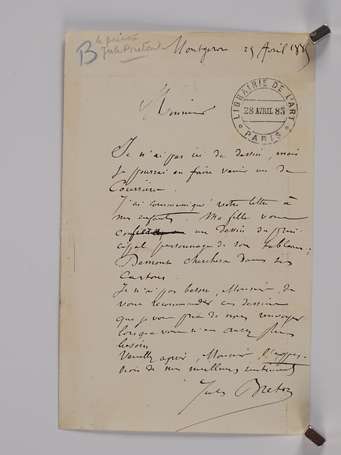 B le peintre
Jules Breton
Montgeron 25 Avril 1885
LIBRAIRIE DE L'ART
28 AVRIL 85
PARIS
Monsieur
Je n'ai pas ici de dessin, mais
je pourrai en faire venir un de
Courrières.
J'ai communiqué votre lettre à
mes enfants. Ma fille vous
un dessin du prin
cipal personnage de son tableau;
Demont cherchera dans ses
cartons.
Je n'ai pas besoin, Monsieur de
vous recommander ces dessins
que je vous prie de nous renvoyer
lorsque vous n'en aurez plus
besoin.
Veuillez agréer, Monsieur l'expres-
sion de mes meilleurs sentiments
Jules Breton